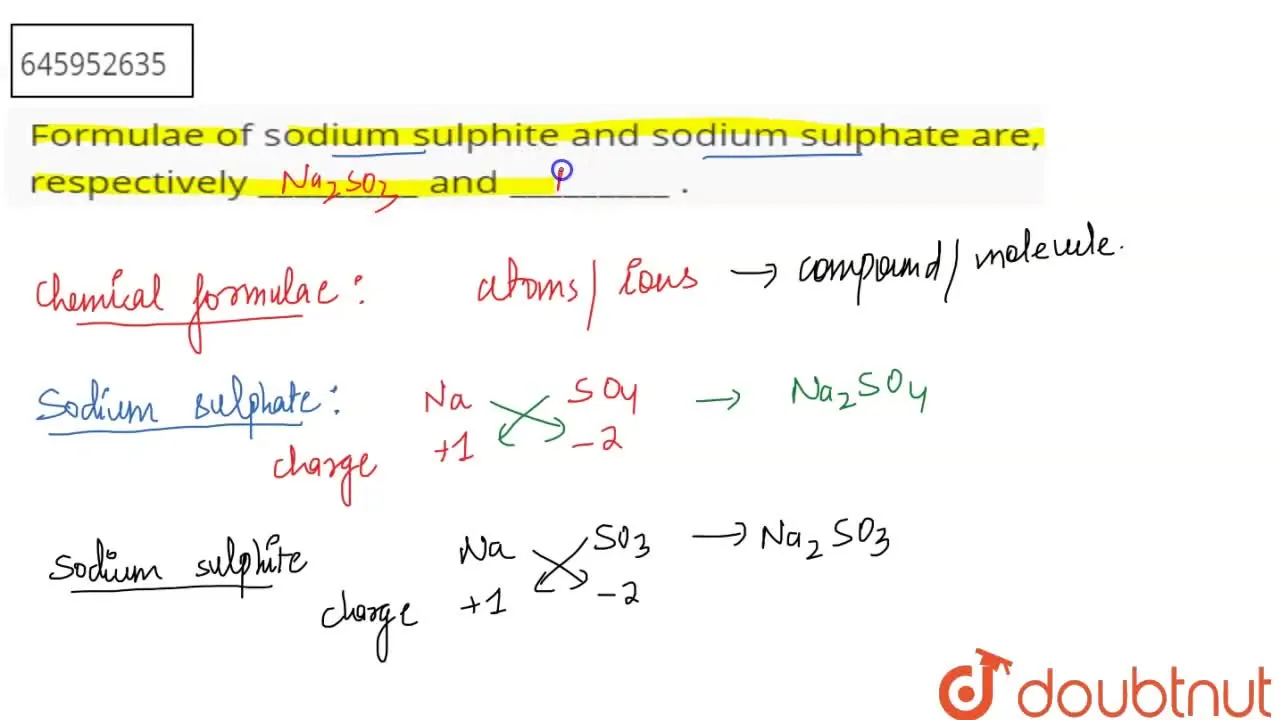 645952635
Formulae of sodium sulphite and sodium sulphate are,
respectively Na2SO3 and ________ .
Chemical formulae: atoms/ions → compound/molecule.
Sodium sulphate: Na SO4 → Na2SO4
charge +1 -2
Sodium sulphite Na SO3 → Na2SO3
charge +1 -2
doubtnut